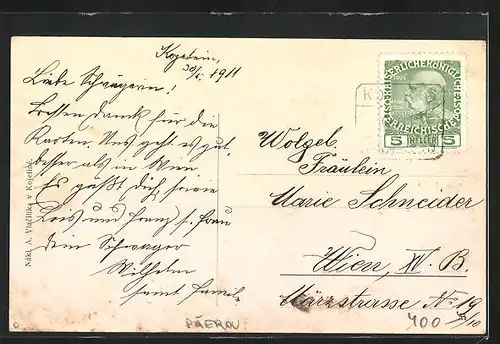 Kojetein,
30/I. 1911
Liebe Schwägerin!
Besten Dank für die
Karten. Uns geht es gut,
besser als in Wien
Es grüßt Dich, sowie
und Franz s. Frau
Dein Schwager
Wilhelm
samt Famil.
Nákl. A. Vlačílika v Kojetíně.
1908
KAISERLICHE KÖNIGLICHE
ÖSTERREICHISCHE POST
5 HELLER 5
Wolgeb.
Fräulein
Marie Schneider
Wien, XV. B.
Märzstrasse No 19
400